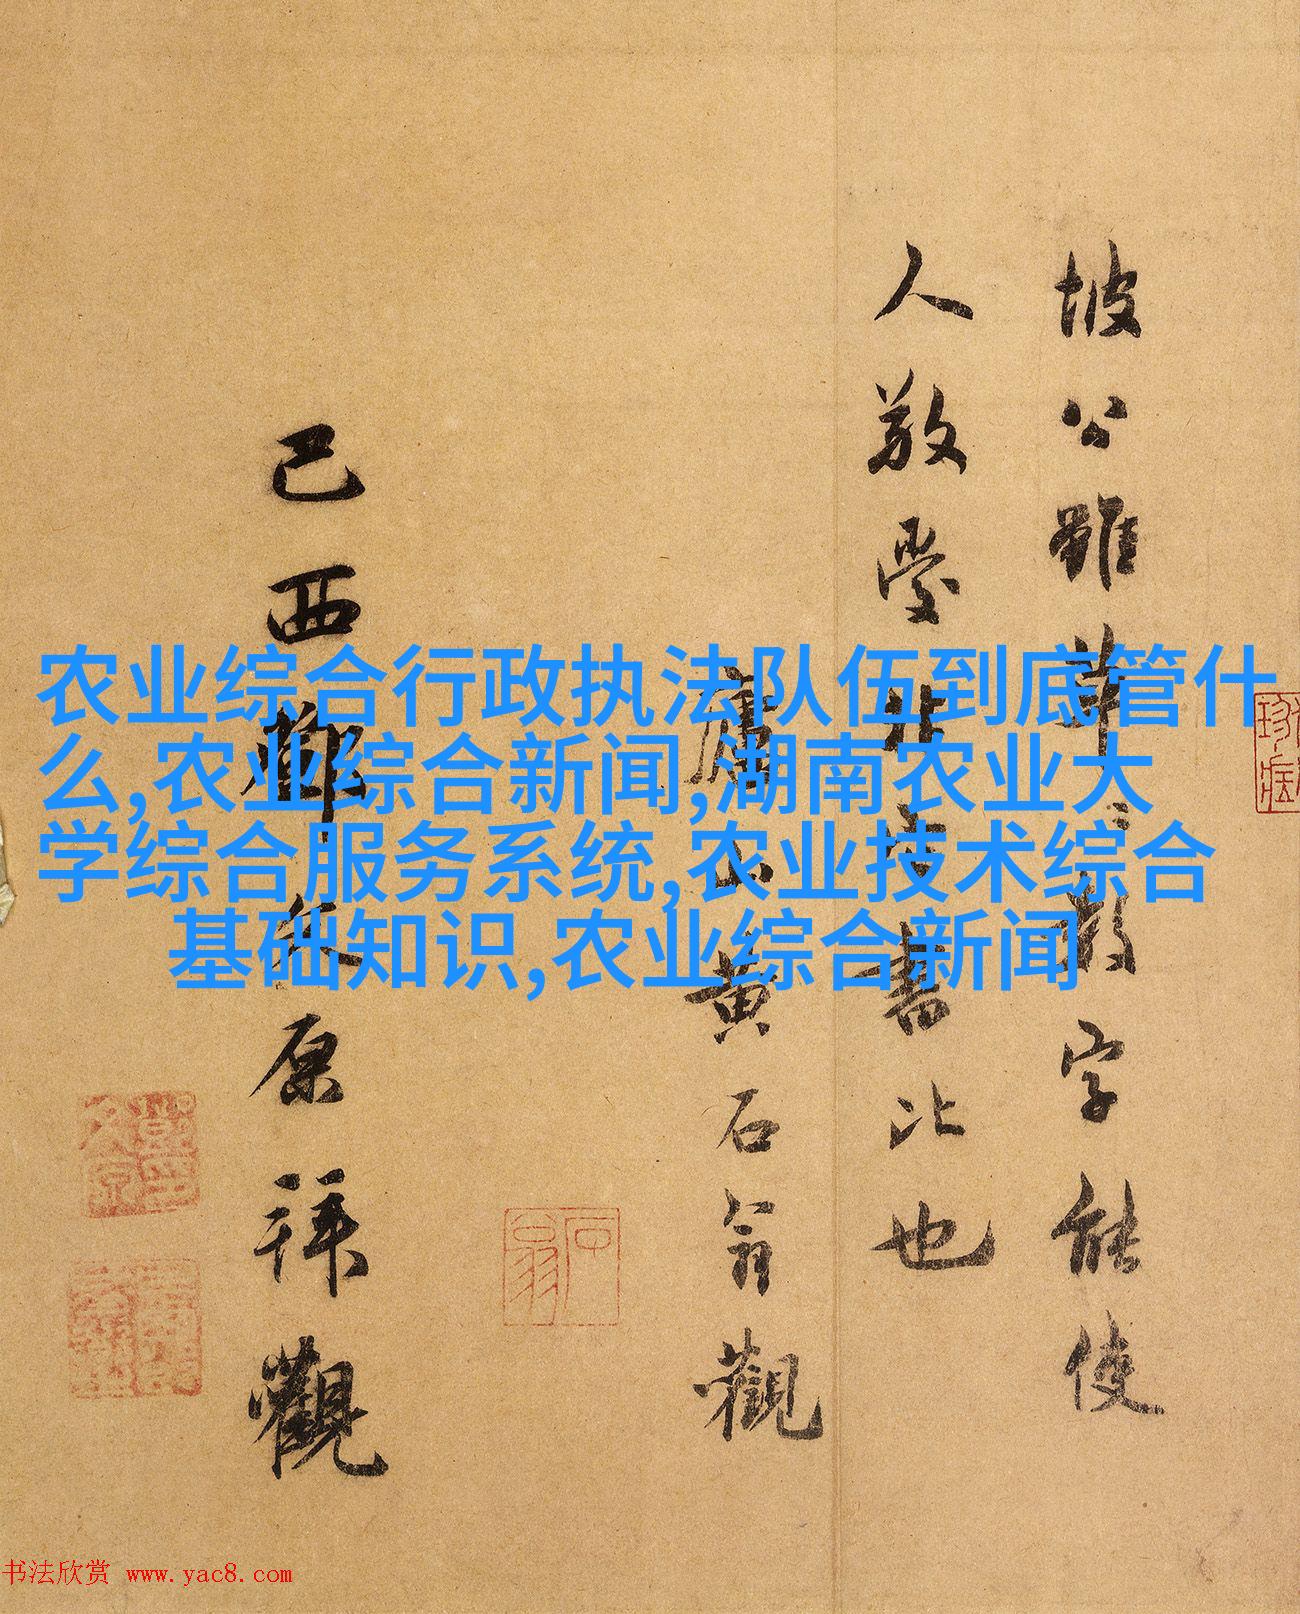 坡公雖草草數字能使
人敬愛非
書比也
庸
黄石翁觀
己酉
原拜觀
农业综合行政执法队伍到底管什
么,农业综合新闻,湖南农业大
学综合服务系统,农业技术综合
基础知识,农业综合新闻
石翁
书法欣赏 www.yac8.com